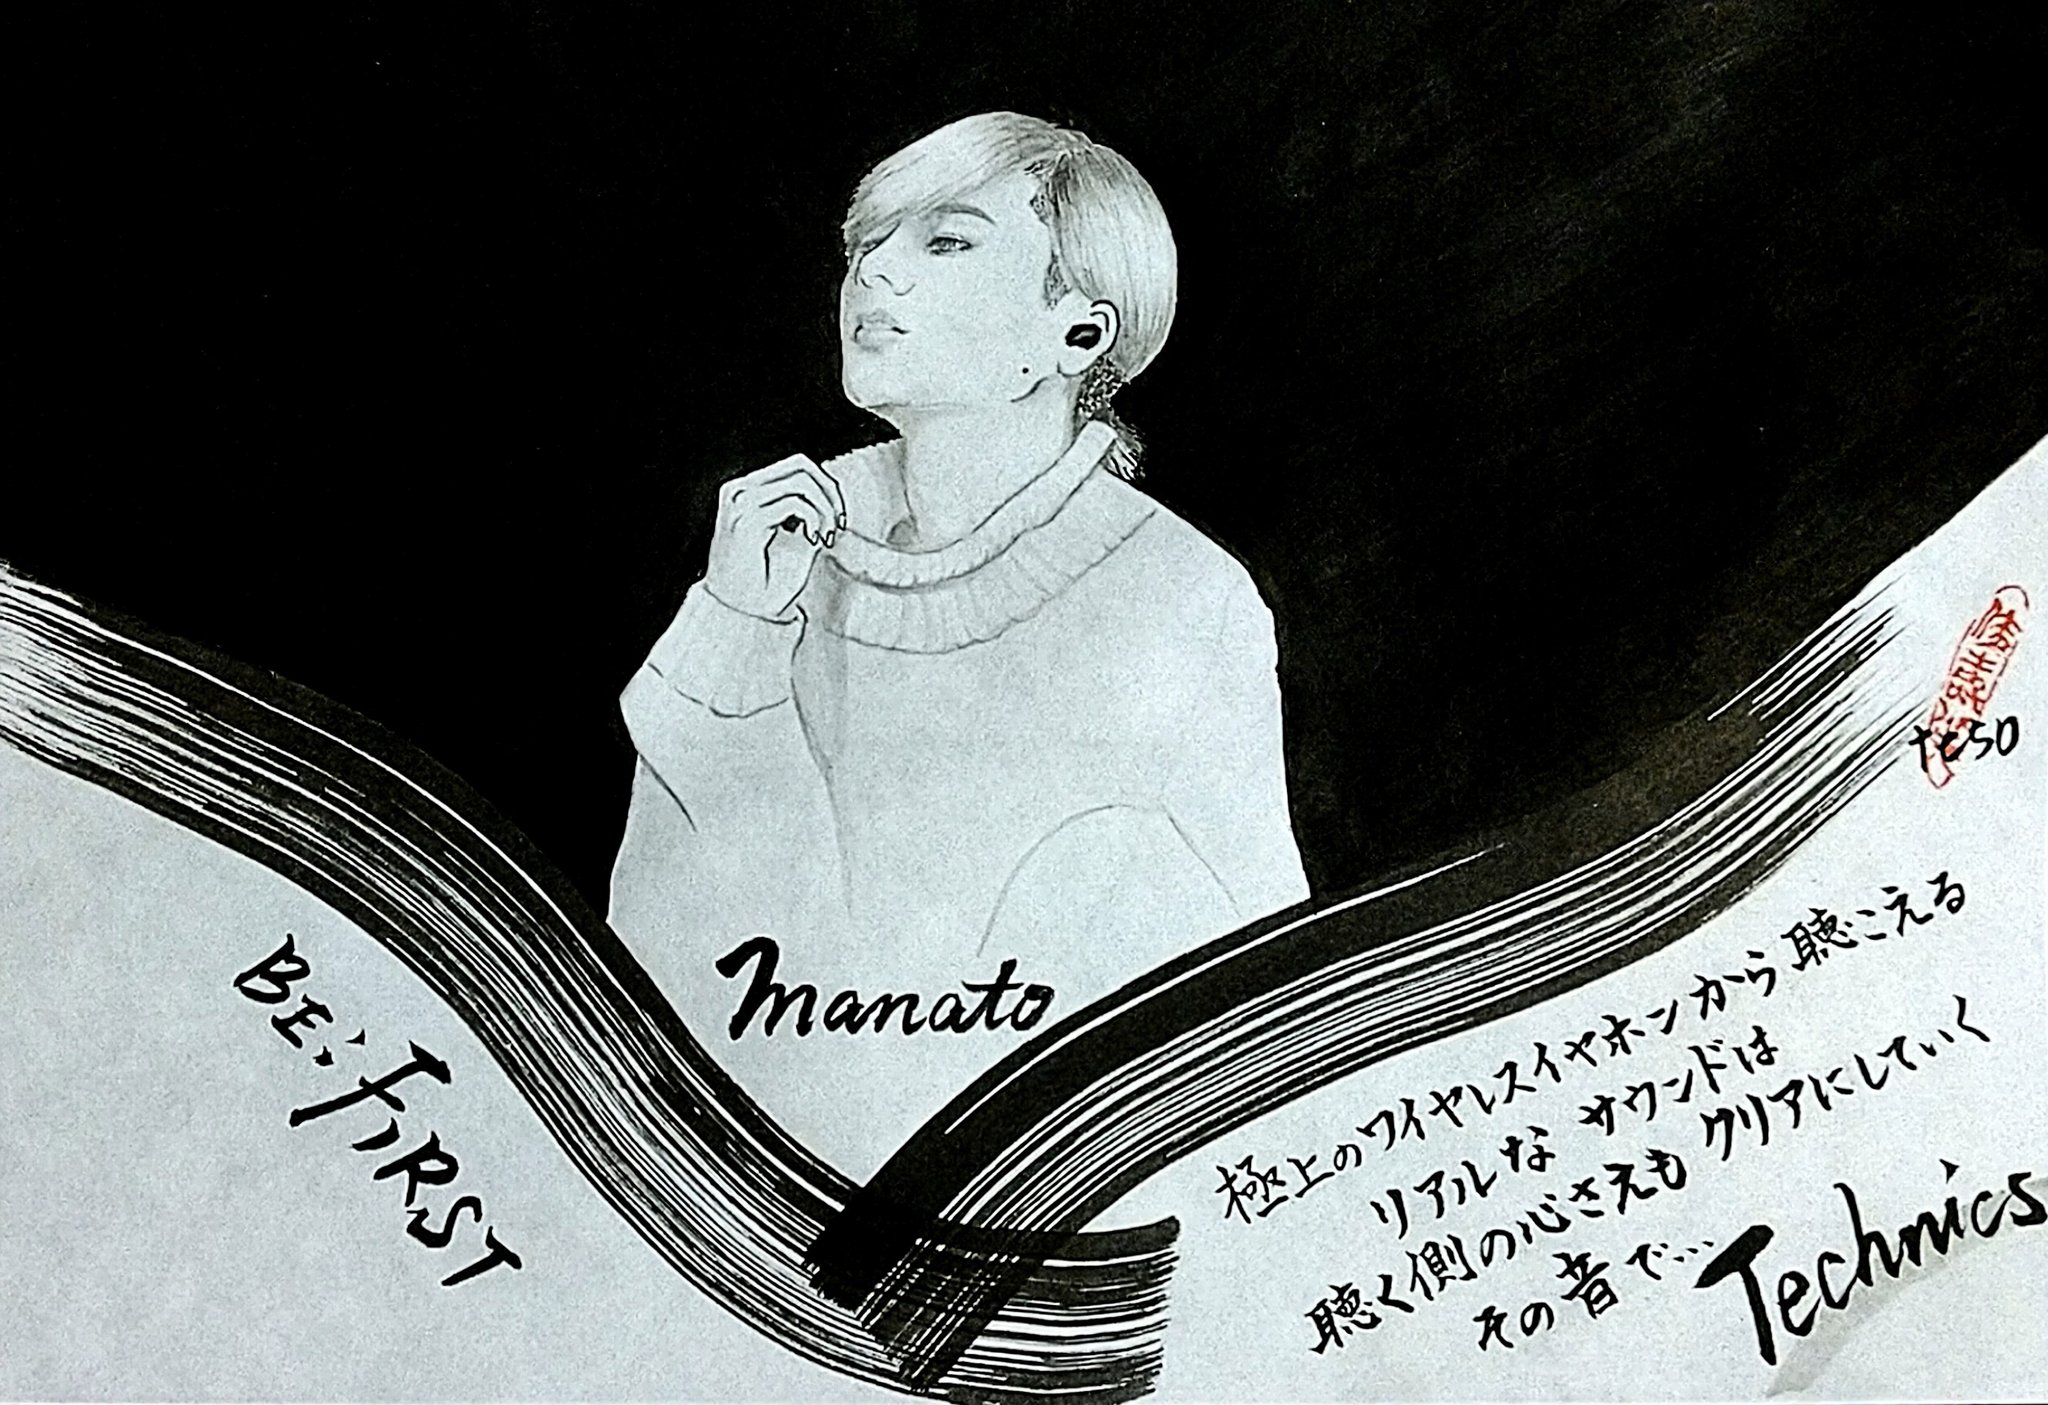 manato
BE:FIRST
極上のワイヤレスイヤホンから聴こえる
リアルなサウンドは
聴く側の心さえもクリアにしていく
その音で…
Technics
teso